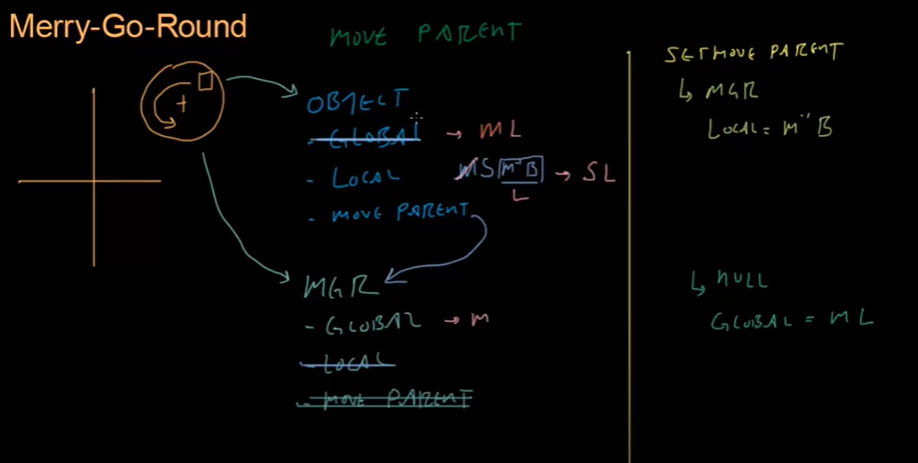 Merry-Go-Round
MOVE PARENT
OBJECT
- GLOBAL → ML
- LOCAL
MS M⁻¹B → SL
L
- MOVE PARENT
MGR
- GLOBAL → M
- LOCAL
- MOVE PARENT
SETMOVE PARENT
↳ MGR
LOCAL = M⁻¹B
↳ NULL
GLOBAL = ML